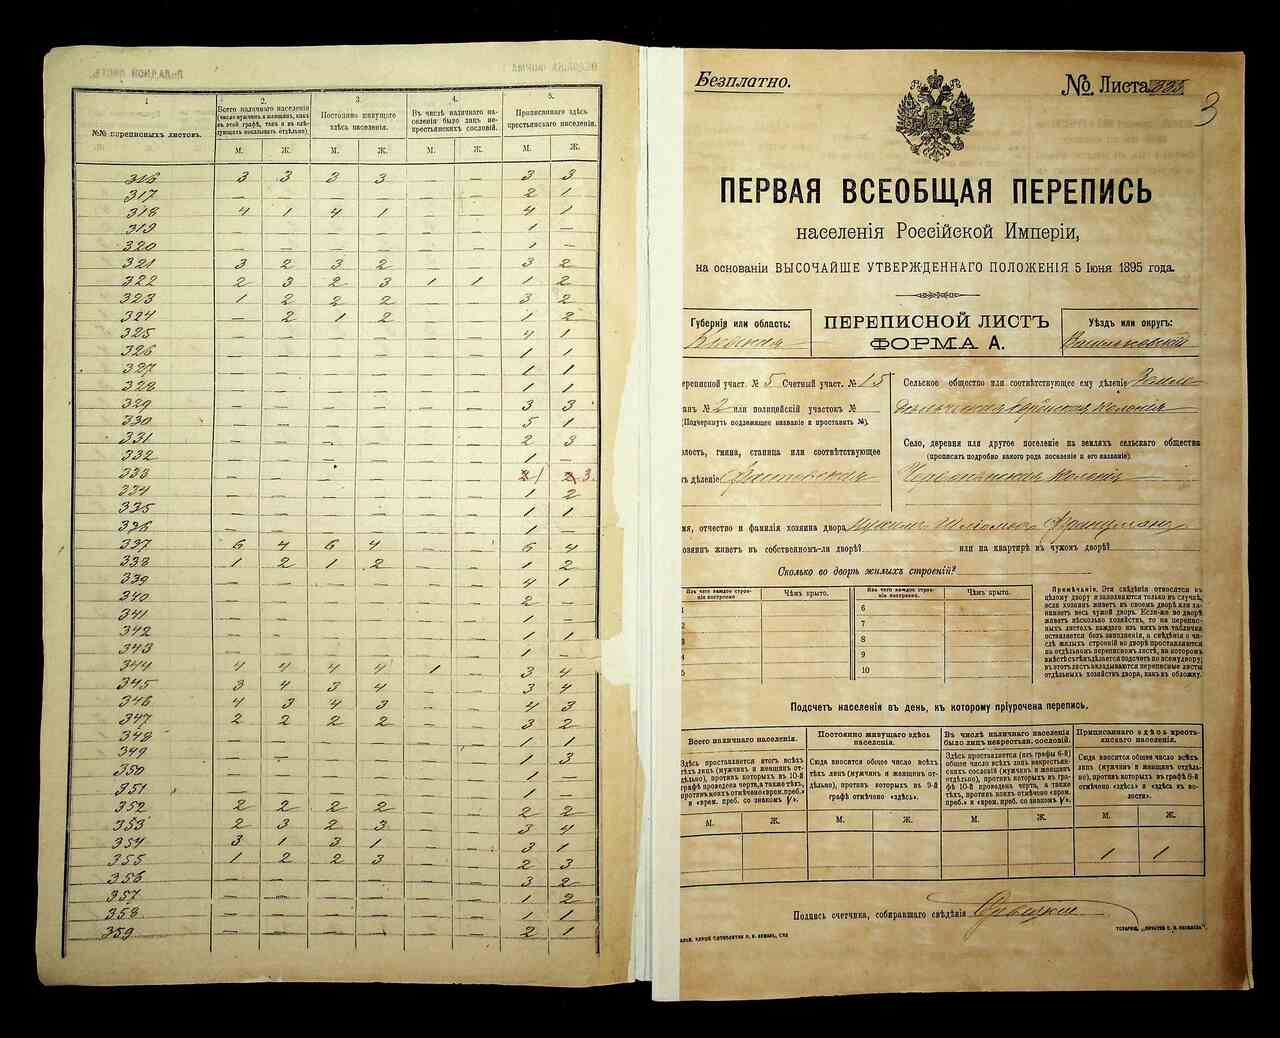 1
2.
3.
4.
5.
№№ переписныхъ листовъ.
Всего наличнаго населенія (число мужчинъ и женщинъ, какъ въ этой графѣ, такъ и въ слѣдующихъ показывать отдѣльно).
Постоянно живущаго здѣсь населенія.
Въ числѣ наличнаго населенія было лицъ некрестьянскихъ сословій.
Приписаннаго здѣсь крестьянскаго населенія.
М. Ж. М. Ж. М. Ж. М. Ж.
316 3 3 3 3 — — 3 3
317 — — — — — — 2 1
318 4 1 4 1 — — 4 1
319 — — — — — — 1 —
320 — — — — — — 1 —
321 3 2 3 2 — — 3 2
322 2 3 2 3 1 1 1 2
323 1 2 2 2 — — 3 2
324 — 2 1 2 — — 1 2
325 — — — — — — 4 1
326 — — — — — — 1 1
327 — — — — — — 1 1
328 — — — — — — 1 1
329 — — — — — — 3 3
330 — — — — — — 5 1
331 — — — — — — 2 3
332 — — — — — — 1 —
333 — — — — — — 1 3.
334 — — — — — — 1 2
335 — — — — — — 1 1
336 — — — — — — 1 —
337 6 4 6 4 — — 6 4
338 1 2 1 2 — — 1 2
339 — — — — — — 4 1
340 — — — — — — 2 —
341 — — — — — — 1 —
342 — — — — — — 1 1
343 — — — — — — 1 —
344 4 4 4 4 1 — 3 4
345 3 4 3 4 — — 3 4
346 4 3 4 3 — — 4 3
347 2 2 2 2 — — 3 2
348 — — — — — — 1 1
349 — — — — — — 1 3
350 — — — — — — 1 —
351 — — — — — — 1 —
352 2 2 2 2 — — 2 2
353 2 3 2 3 — — 3 4
354 3 1 3 1 — — 3 1
355 1 2 2 3 — — 2 3
356 — — — — — — 3 2
357 — — — — — — 1 2
358 — — — — — — 1 1
359 — — — — — — 2 1
Безплатно.
№ Листа 335
3
ПЕРВАЯ ВСЕОБЩАЯ ПЕРЕПИСЬ
населенія Россійской Имперіи,
на основаніи ВЫСОЧАЙШЕ УТВЕРЖДЕННАГО ПОЛОЖЕНІЯ 5 Іюня 1895 года.
Губернія или область:
Кіевская
ПЕРЕПИСНОЙ ЛИСТЪ
ФОРМА А.
Уѣздъ или округъ:
Васильковскій
ереписной участ. № 5 Счетный участ. № 15
анъ № 2 или полицейскій участокъ №
(Подчеркнуть подлежащее названіе и проставить №).
лость, гмина, станица или соотвѣтствующее
ъ дѣленіе Фастовская
Сельское общество или соотвѣтствующее ему дѣленіе Земле
дѣльческая еврейская колонія
Село, деревня или другое поселеніе на земляхъ сельскаго общества
(прописать подробно какого рода поселеніе и его названіе).
Червонянская колонія
мя, отчество и фамилія хозяина двора
озяинъ живетъ въ собственномъ-ли дворѣ? или на квартирѣ въ чужомъ дворѣ?
Сколько во дворѣ жилыхъ строеній?
Изъ чего каждое строеніе построено
Чѣмъ крыто.
Изъ чего каждое строеніе построено
Чѣмъ крыто.
1 6
2 7
3 8
4 9
5 10
Примѣчаніе. Эти свѣдѣнія относятся къ
цѣлому двору и заполняются только въ случаѣ,
если хозяинъ живетъ въ своемъ дворѣ или за-
нимаетъ весь чужой дворъ. Если-же во дворѣ
живетъ нѣсколько хозяйствъ, то на перепис-
ныхъ листахъ каждаго изъ нихъ эта табличка
оставляется безъ заполненія, а свѣдѣнія о чи-
слѣ жилыхъ строеній во дворѣ проставляются
на отдѣльномъ переписномъ листѣ, на которомъ
вмѣстѣ съ тѣмъ дѣлается подсчетъ по всему двору;
въ этотъ листъ вкладываются переписные листы
отдѣльныхъ хозяйствъ двора, какъ въ обложку.
Подсчетъ населенія въ день, къ которому пріурочена перепись.
Всего наличнаго населенія.
Постоянно живущаго здѣсь населенія.
Въ числѣ наличнаго населенія было лицъ некрестьян. сословій.
Приписаннаго здѣсь крестьянскаго населенія.
Здѣсь проставляется итогъ всѣхъ тѣхъ лицъ (мужчинъ и женщинъ отдѣльно), противъ которыхъ въ 10-й графѣ проведена черта, а также тѣхъ, противъ коихъ отмѣчено «врем. преб.» и «врем. преб. со знакомъ V».
Сюда вносится общее число всѣхъ тѣхъ лицъ (мужчинъ и женщинъ отдѣльно), противъ которыхъ въ 9-й графѣ отмѣчено «здѣсь».
Здѣсь проставляется (изъ графы 6-й) общее число всѣхъ лицъ некрестьянскихъ сословій (мужчинъ и женщинъ отдѣльно), противъ которыхъ въ графѣ 10-й проведена черта, а также тѣхъ, противъ коихъ отмѣчено «врем. преб.» и «врем. преб. со знакомъ V».
Сюда вносится общее число всѣхъ лицъ (мужчинъ и женщинъ отдѣльно), противъ которыхъ въ графѣ 8-й отмѣчено «здѣсь» и «здѣсь въ волости».
М. Ж. М. Ж. М. Ж. М. Ж.
1 1
Подпись счетчика, собиравшаго свѣдѣнія